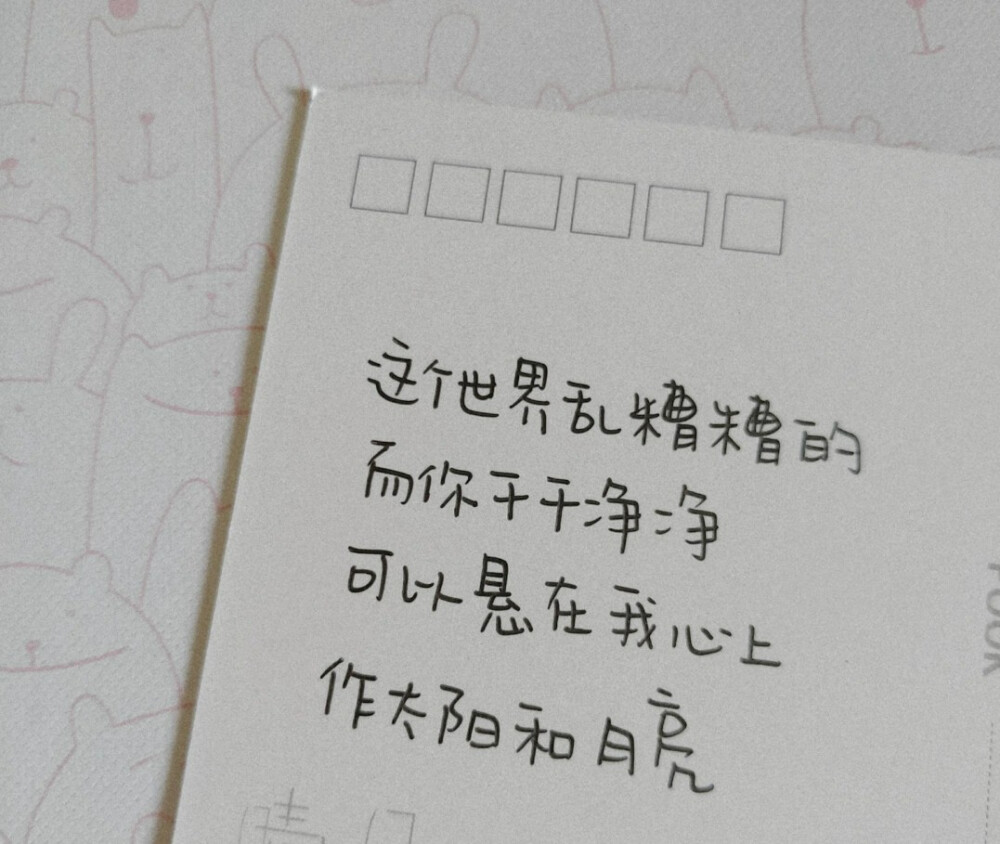 这个世界乱糟糟的
而你干干净净
可以悬在我心上
作太阳和月亮